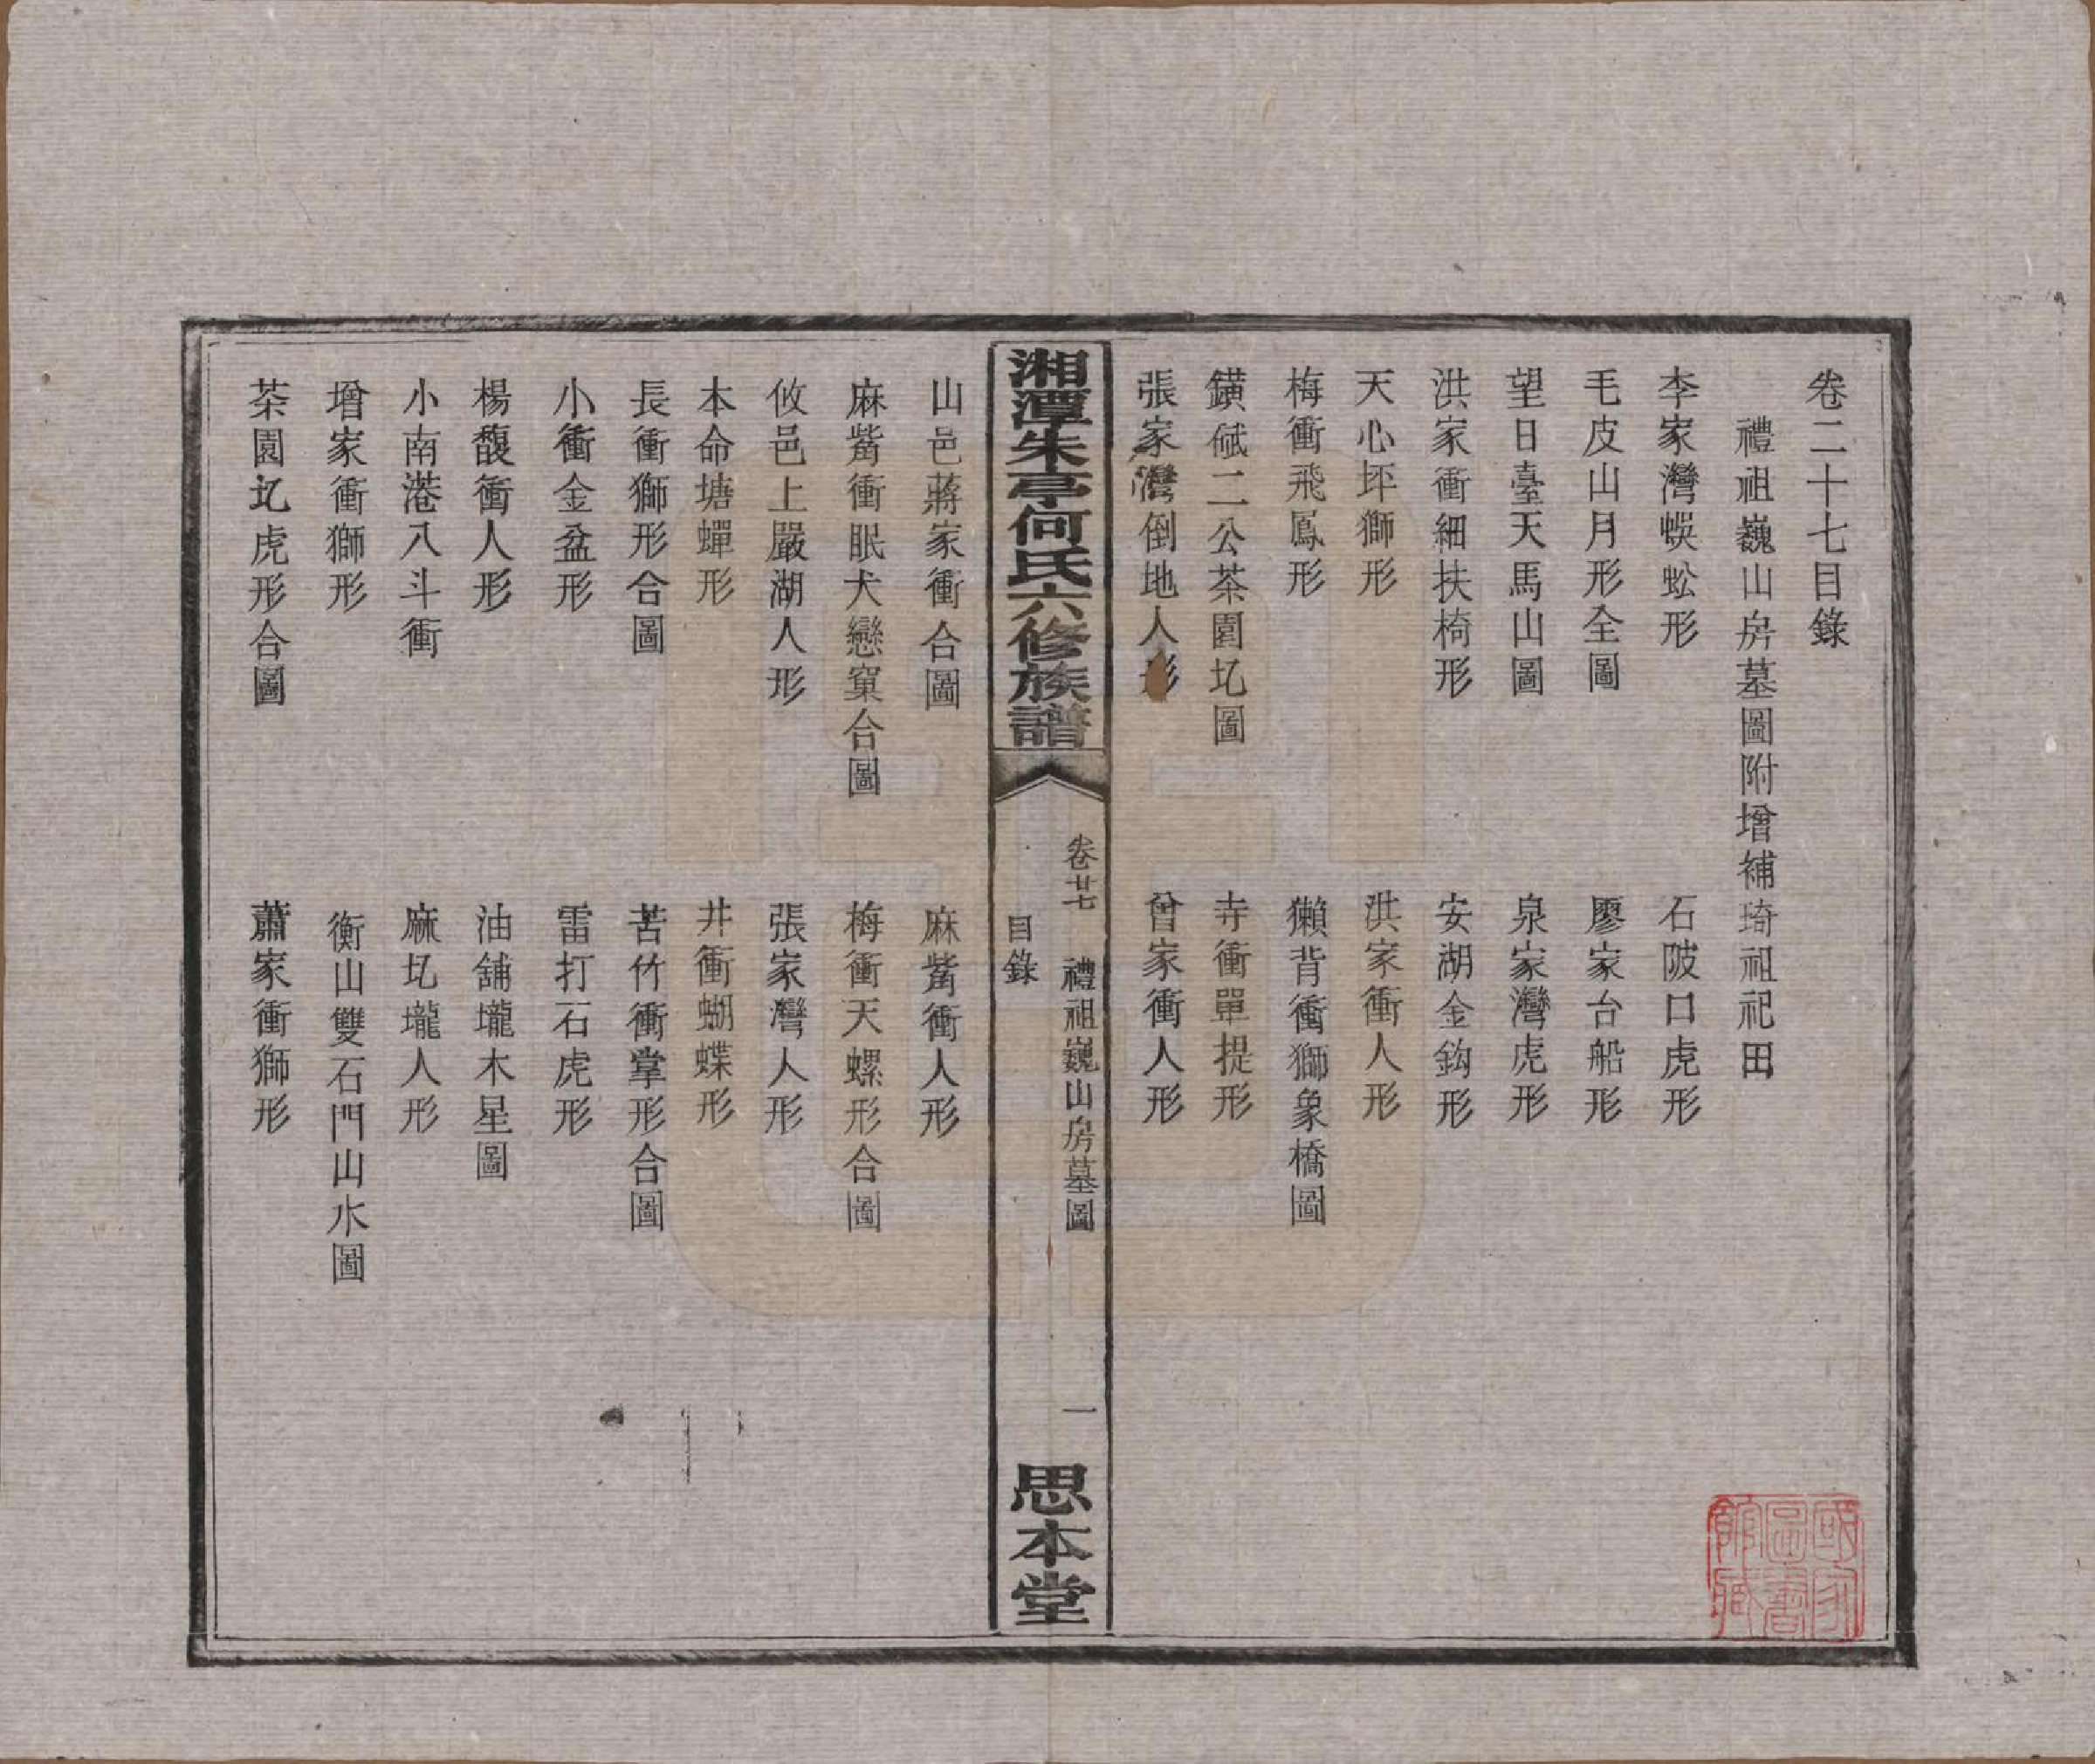 卷二十七目錄
禮祖巍山房墓圖附增補琦祖祀田
李家灣蜈蚣形
石陂口虎形
毛皮山月形全圖
廖家台船形
望日臺天馬山圖
泉家灣虎形
洪家衝細扶椅形
安湖金鈎形
天心坪獅形
洪家衝人形
梅衝飛鳳形
獺背衝獅象橋圖
鐄𠈁二公茶園圠圖
寺衝單提形
張家灣倒地人形
曾家衝人形
湘潭朱亭何氏六修族譜
卷廿七 禮祖巍山房墓圖 一
目錄
思本堂
山邑蔣家衝合圖
麻嵛衝人形
麻嵛衝眠犬戀窠合圖
梅衝天螺形合圖
攸邑上嚴湖人形
張家灣人形
本命塘蟬形
井衝蝴蝶形
長衝獅形合圖
苦竹衝掌形合圖
小衝金盆形
雷打石虎形
楊馥衝人形
油舖壠木星圖
小南港八斗衝
麻圠壠人形
增家衝獅形
衡山雙石門山水圖
茶園圠虎形合圖
蕭家衝獅形
國家圖書館藏